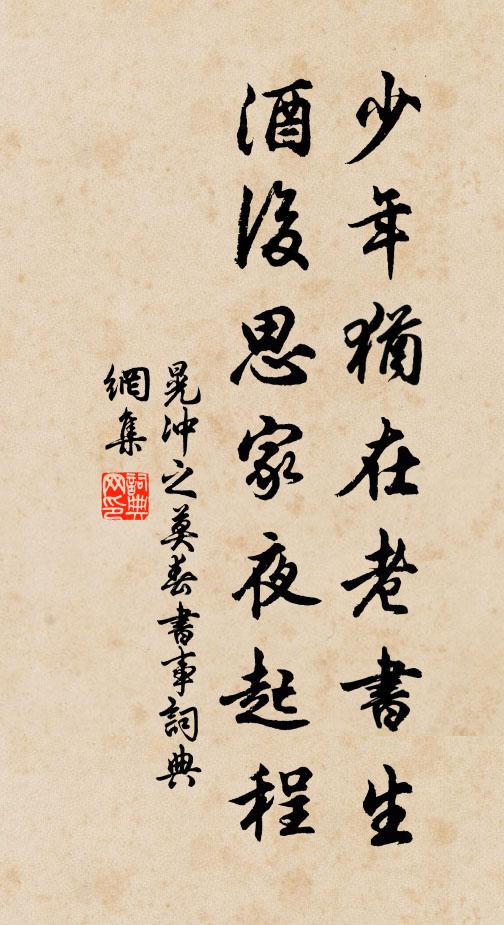 少年猶在老書生
酒後思家夜起程
晁冲之莫春書事詞典
網集
詞典
网印